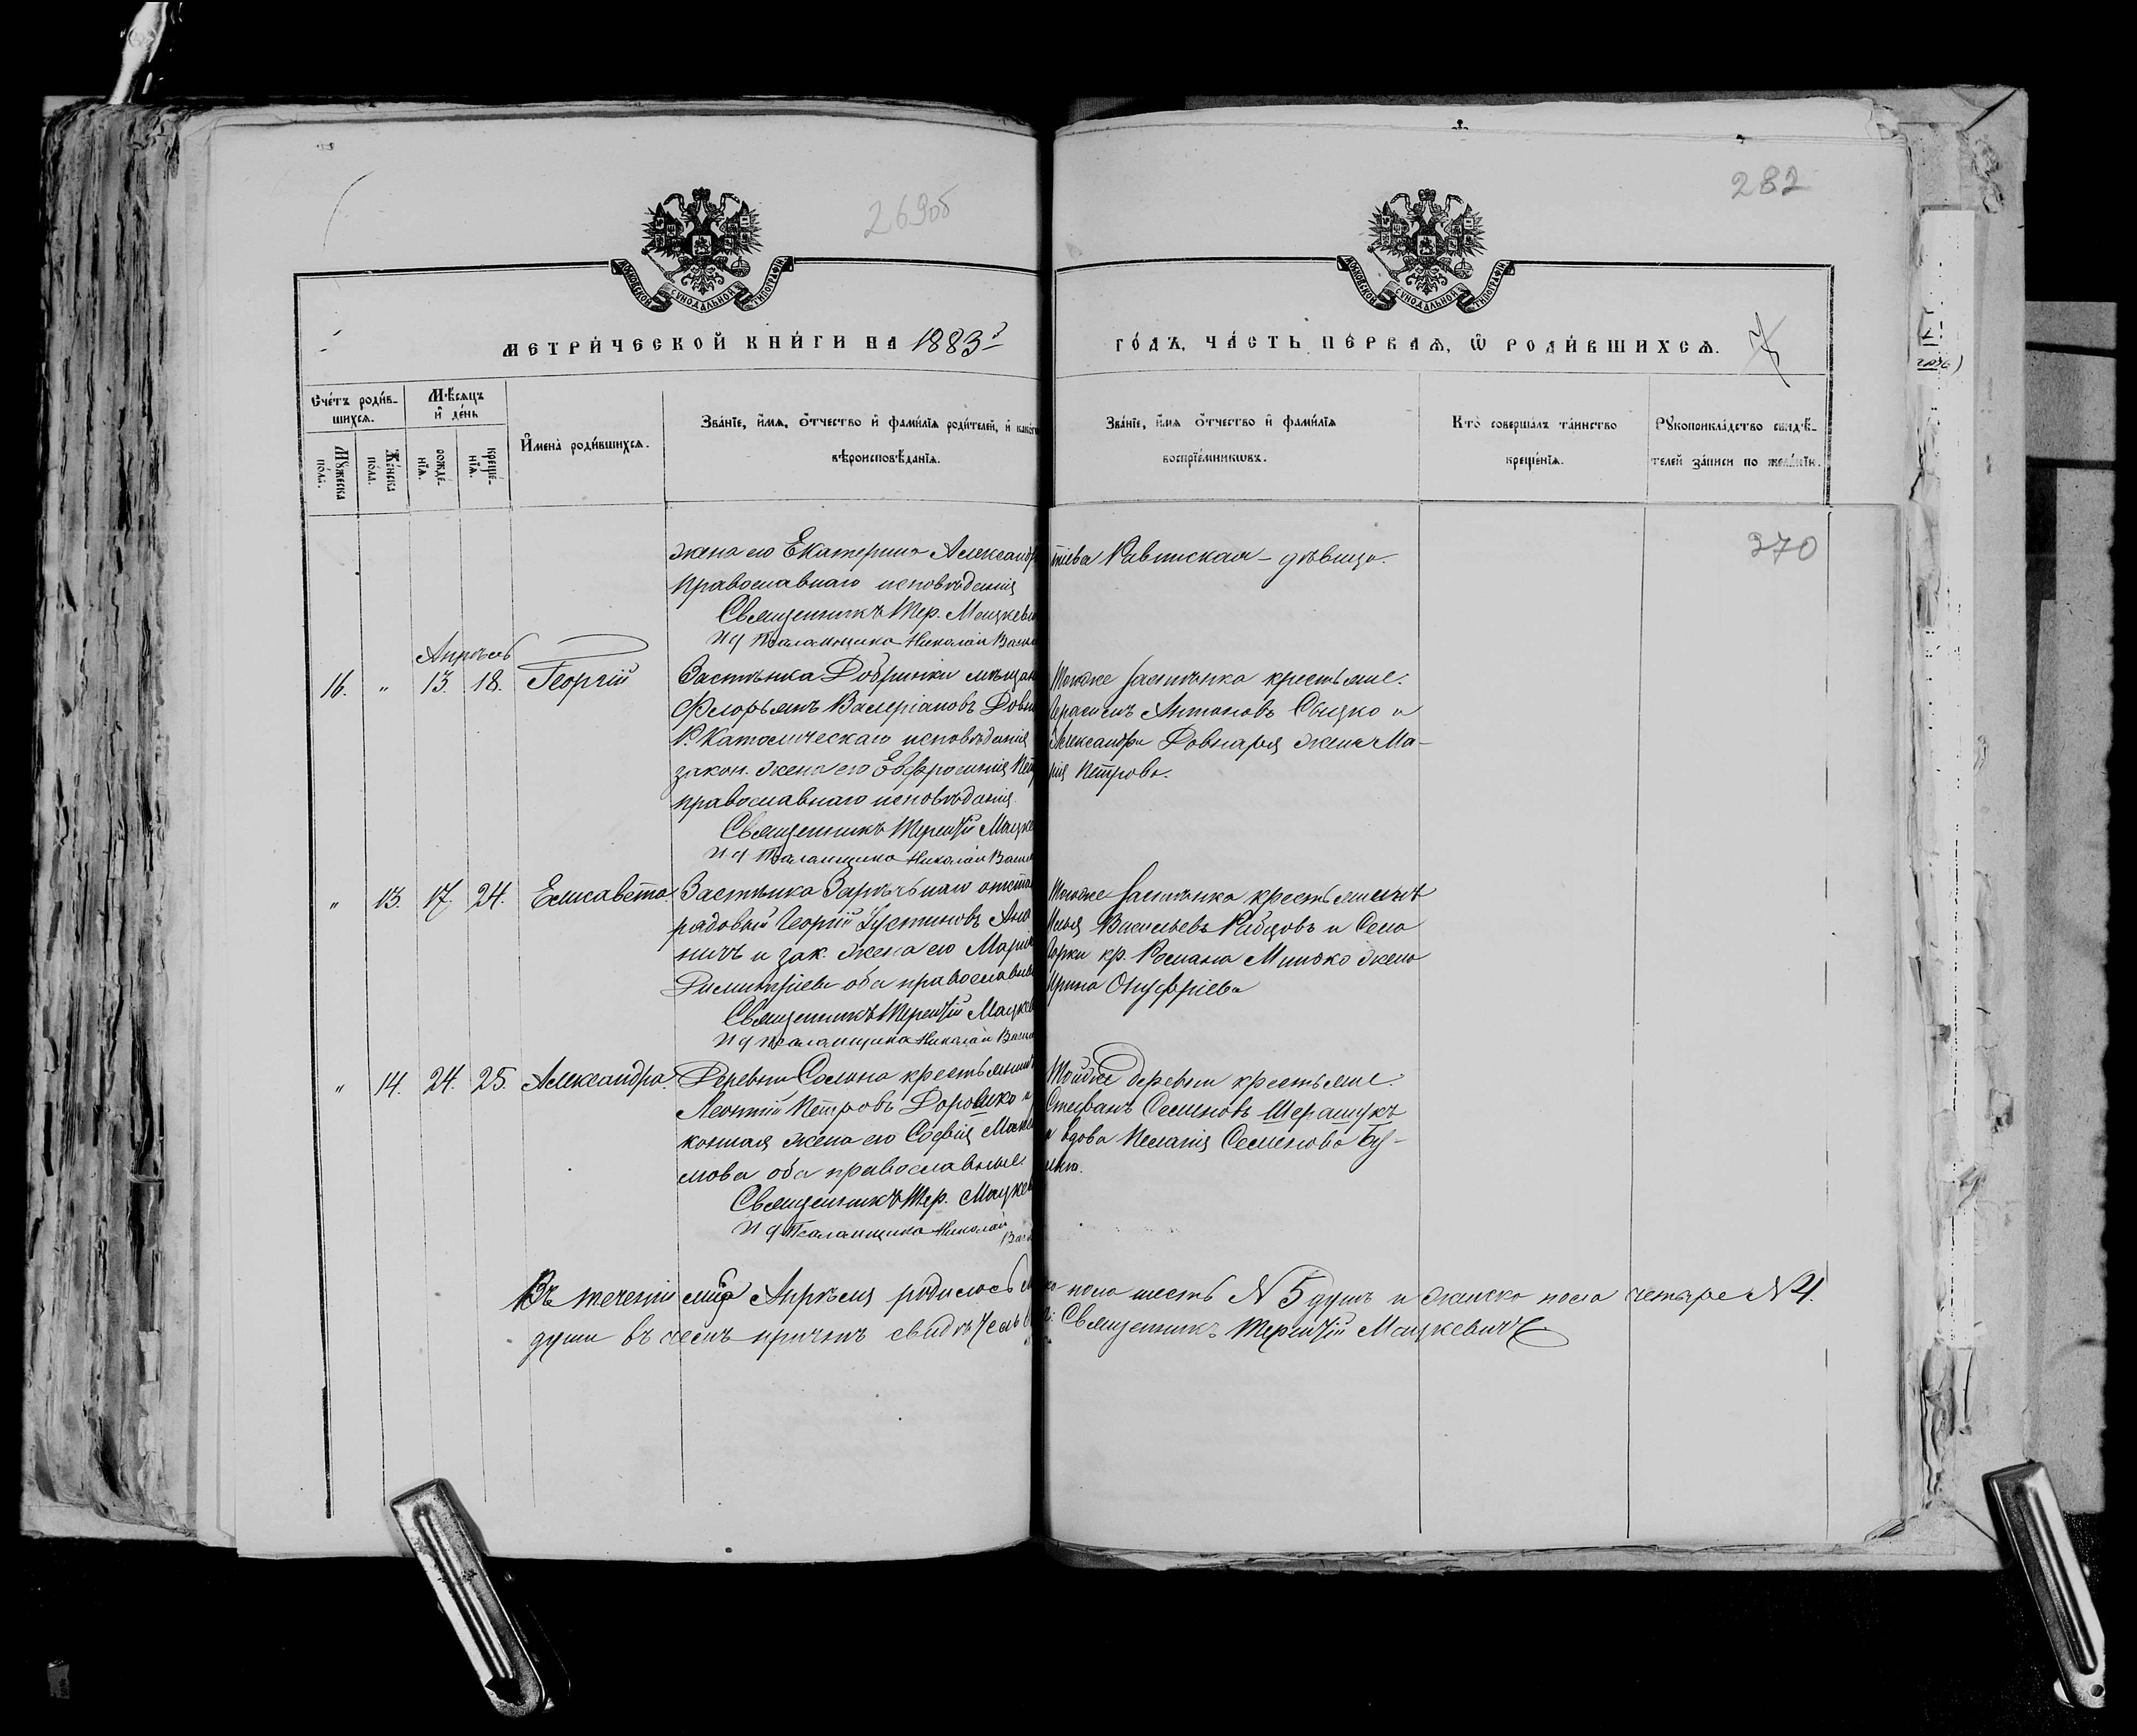 269об
282
МОСКОВСКОЙ СУНОДАЛЬНОЙ ТИПОГРАФІИ
МОСКОВСКОЙ СУНОДАЛЬНОЙ ТИПОГРАФІИ
МЕТРИ́ЧЕСКОЙ КНИ́ГИ НА 1883 г
ГО́ДЪ, ЧА́СТЬ ПЕ́РВАѦ, Ѡ РОДИ́ВШИХСѦ. 7
Сче́тъ роди́в-
шихсѧ.
Мѣсѧцъ
и де́нь
Мꙋжеска
по́ла.
Же́нска
по́ла.
рожде́-
нїѧ.
креще́-
нїѧ.
Имена̀ роди́вшихсѧ.
Зва́нїе, и́мѧ, о́тчество и фами́лїѧ роди́телей, и како́гѡ
вѣроисповѣ́данїѧ.
Зва́нїе, и́мѧ о́тчество и фами́лїѧ
воспрїе́мникѡвъ.
Кто̀ соверша́лъ та́инство
креще́нїѧ.
Рꙋкоприкла́дство свидѣ́-
телей за́писи по жела́нїю.
270
жена его Екатерина Александр
православнаго исповѣданія
Священникъ Тер. Мацкеви
И д Псаломщика Николай Васи
тіева Равинская - дѣвица.
Апрѣль
16. " 13. 18. Георгій
Застѣнка Добринки мѣщан
Флорьянъ Валеріановъ Довн
Р. Католическаго исповѣданія
закон. жена его Евфросинія Пет
православнаго исповѣданія
Священникъ Терентій Мацке
И д Псаломщика Николай Васи
Тогоже застѣнка крестьяне.
Герасимъ Антоновъ Сыцко и
Александра Довнара жена Ма-
рія Петрова.
" 13. 17. 24. Елисавета.
Застѣнка Зарѣчьнаго отста
рядовый Георгій Іустиновъ Ана
ничъ и зак. жена его Марія
Димитріева оба православны
Священникъ Терентій Мацкев
И д Псаломщика Николай Васи
Тогоже застѣнка крестьянинъ
Илья Васильевъ Рабцовъ и Села
Горки кр. Романа Минько жена
Ирина Онуфріева
" 14. 24. 25. Александра.
Деревни Солона крестьянинъ
Леонтій Петровъ Дорошко и
конная жена его Софія Макси
мова оба православные.
Священникъ Тер. Мацкев
И д Псаломщика Николай
Васи
Тойже деревни крестьяне.
Стефанъ Семеновъ Шеращукъ
и вдова Пелагія Семенова Бу-
Въ теченіи мца Апрѣля родилось м
ко пола шесть N 5 душъ и женско пола четыре N 4.
души въ чемъ причтъ свидѣтель
Священникъ Терентій Мацкевичъ